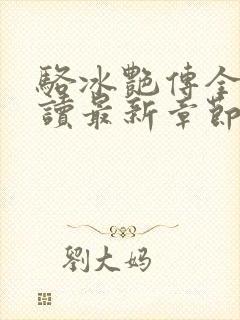 駱冰艷傳全
讀最新章節
劉大妈